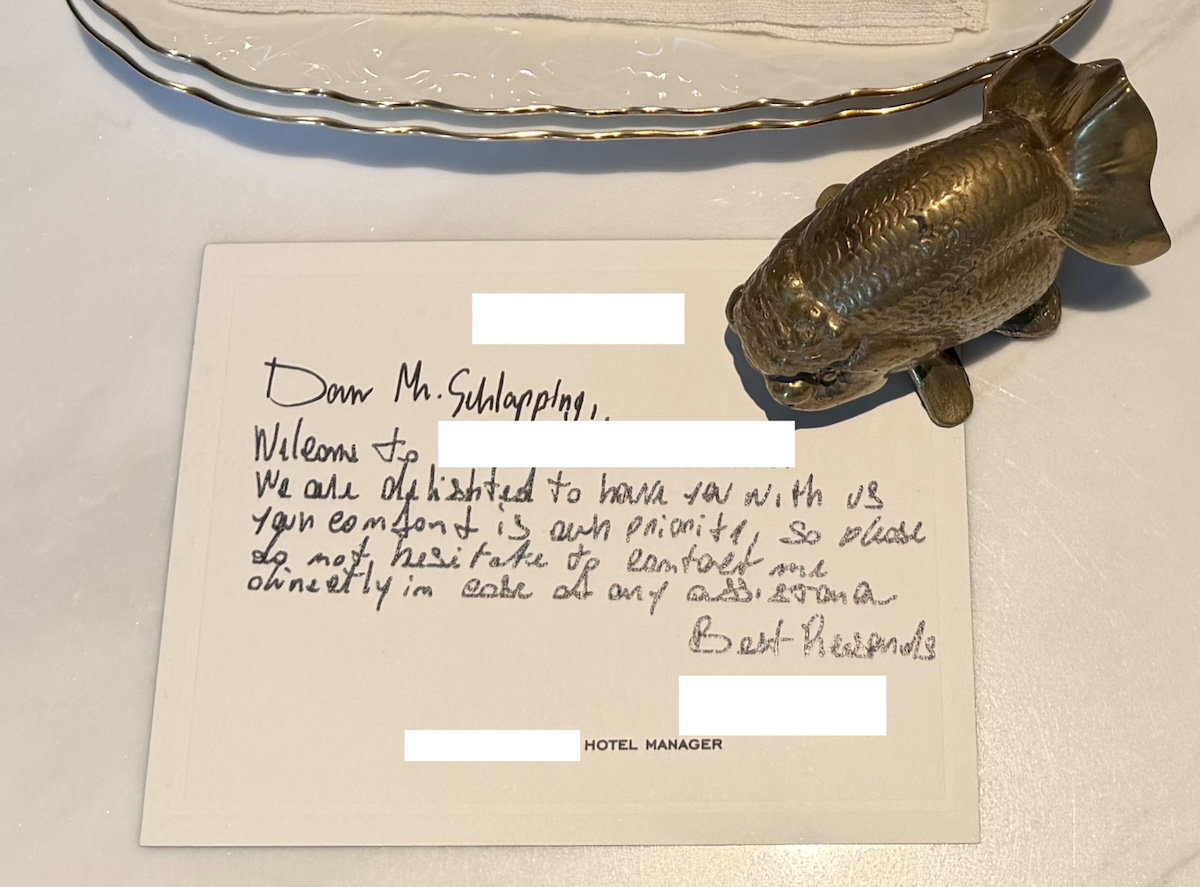 Dear Mr. Schlapping,
Welcome to
We are delighted to have you with us
your comfort is our priority, so please
do not hesitate to contact me
directly in case of any assistance.
Best Regards
HOTEL MANAGER